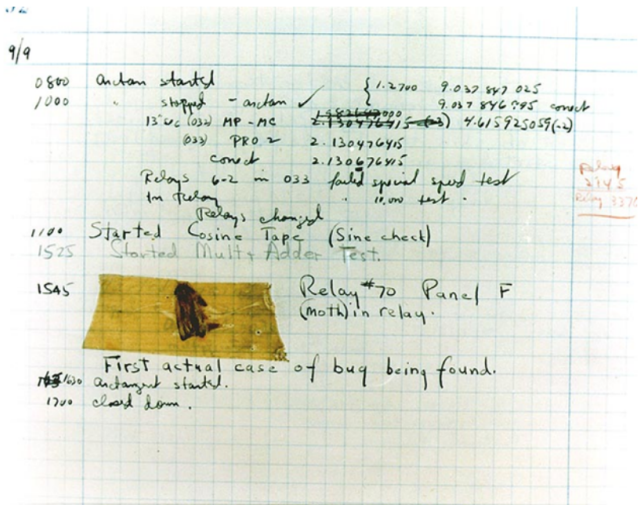 9/9
0800 arctan started { 1.2700 9.037 847 025
1000 " stopped - arctan ✓ 9.037 846 995 conect
13"uc (032) MP - MC 2.130476415 (-3) 4.615925059(-2)
(033) PRO 2 2.130476415
conect 2.130676415
Relays 6-2 in 033 failed special speed test
In Relay " 10,000 test .
Relays changed
Relay
2145
Relay 3370
1100 Started Cosine Tape (Sine check)
1525 Started Mult+Adder Test.
1545 Relay #70 Panel F
(moth) in relay.
First actual case of bug being found.
1630 arctangent started.
1700 closed down.